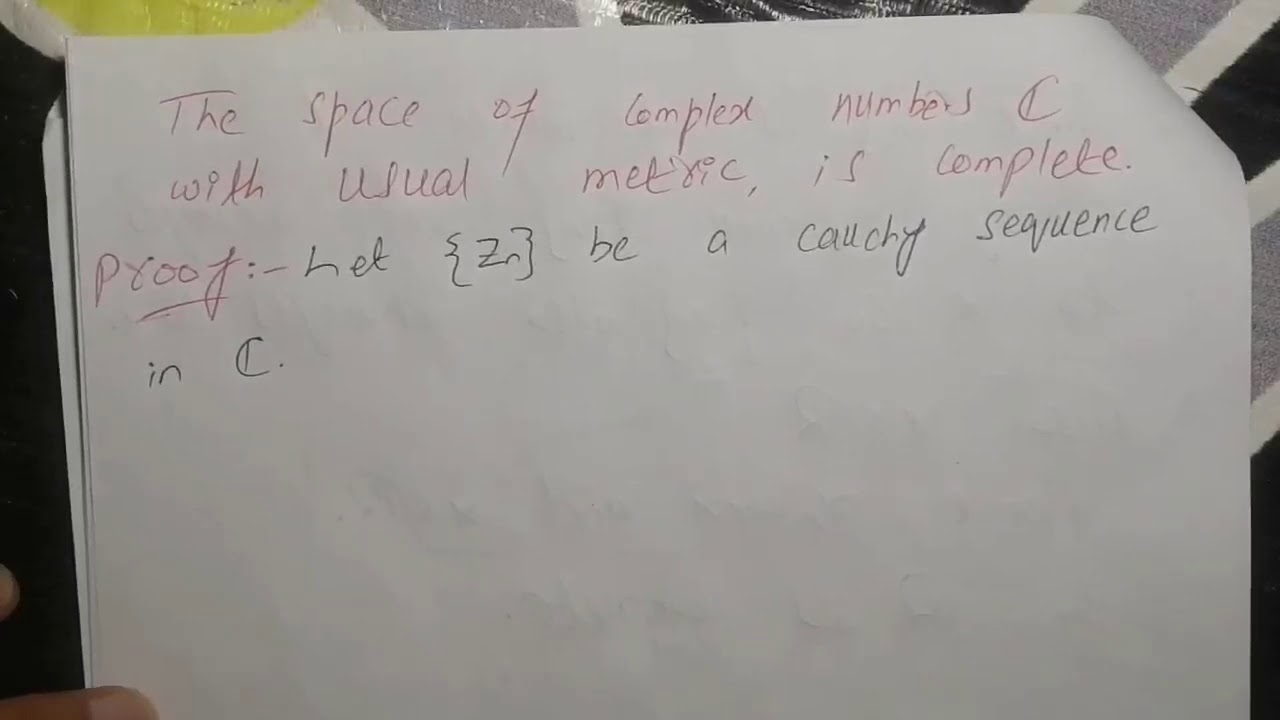 The space of complex numbers ℂ
with usual metric, is complete.
Proof:- Let {Zn} be a cauchy sequence
in ℂ.